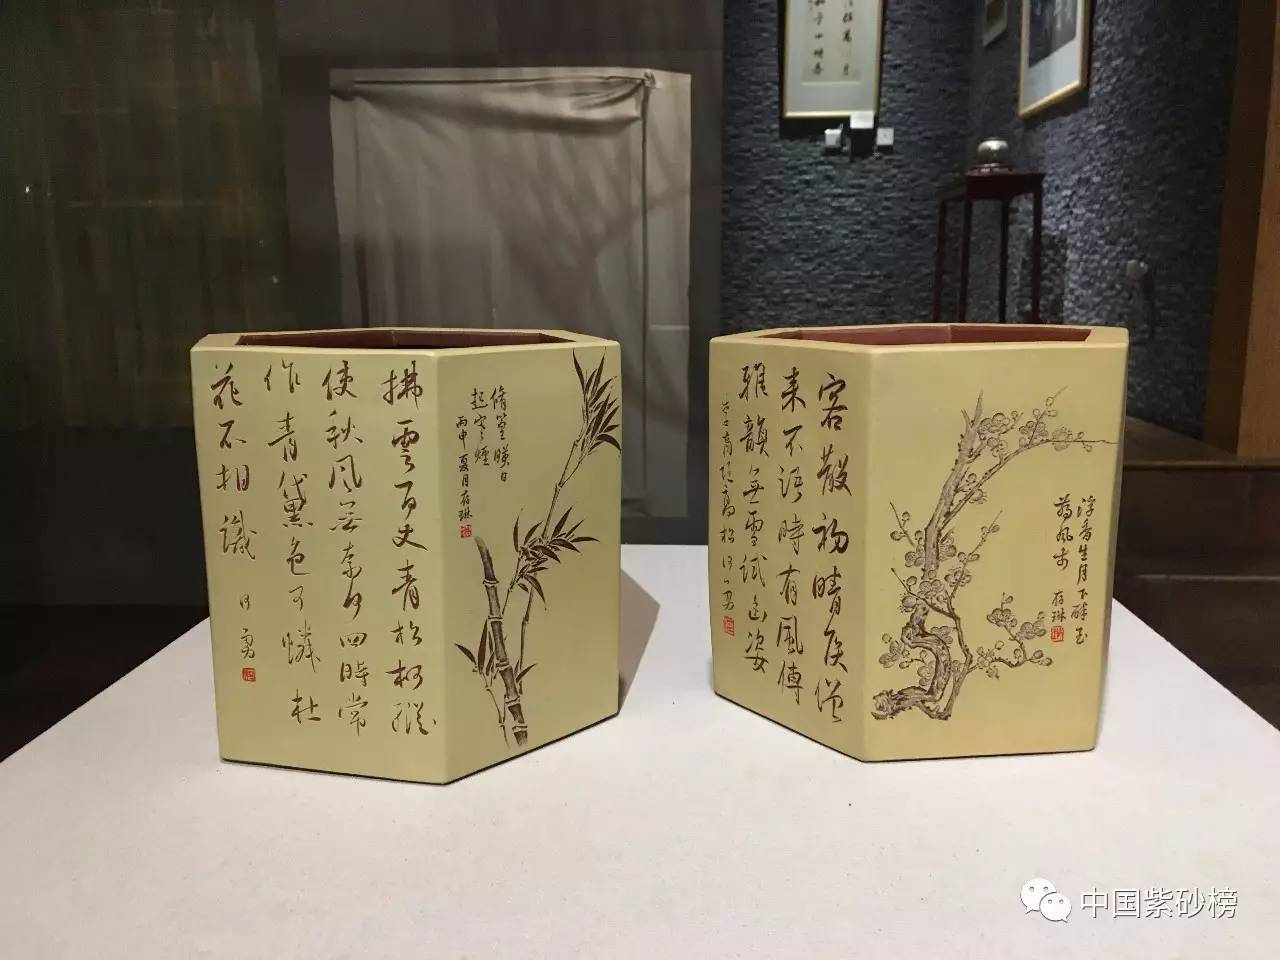 拂雲百丈青松柯縱
使秋風無奈何四時常
作青黛色可憐杜
花不相識
何勇
脩篁暎日
起寒煙
丙申夏月存琳
客散初晴侯僧
来不語時有風傳
雅韻無雪試幽姿
李商隐高松何勇
浮香生月下醉玉
存琳
中国紫砂榜